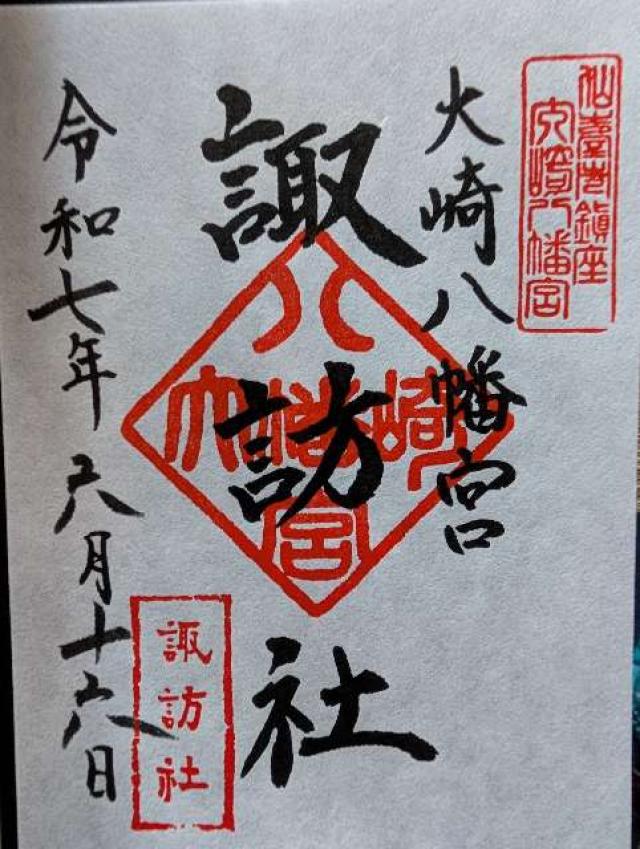 仙臺鎮座
大崎八幡宮
大崎八幡宮
諏訪社
大崎八幡宮
諏訪社
令和七年六月十六日